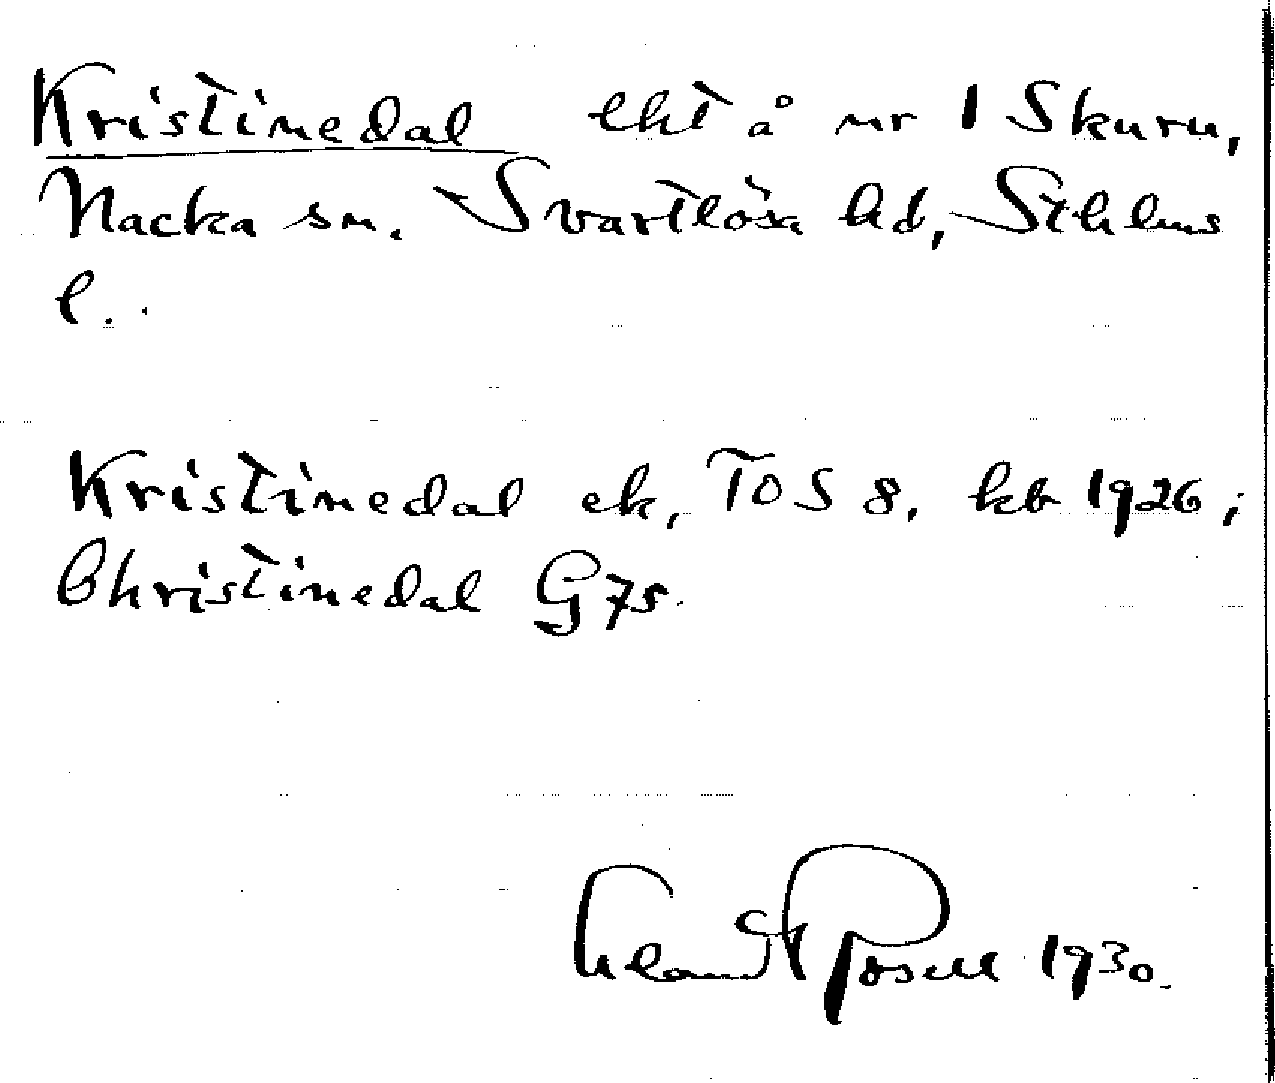 Kristinedal lht å nr 1 Skuru,
Nacka sn. Svartlösa hd, Sthlms
l.
Kristinedal ek, TOS 8, kb 1926;
Christinedal G 75.
1930.